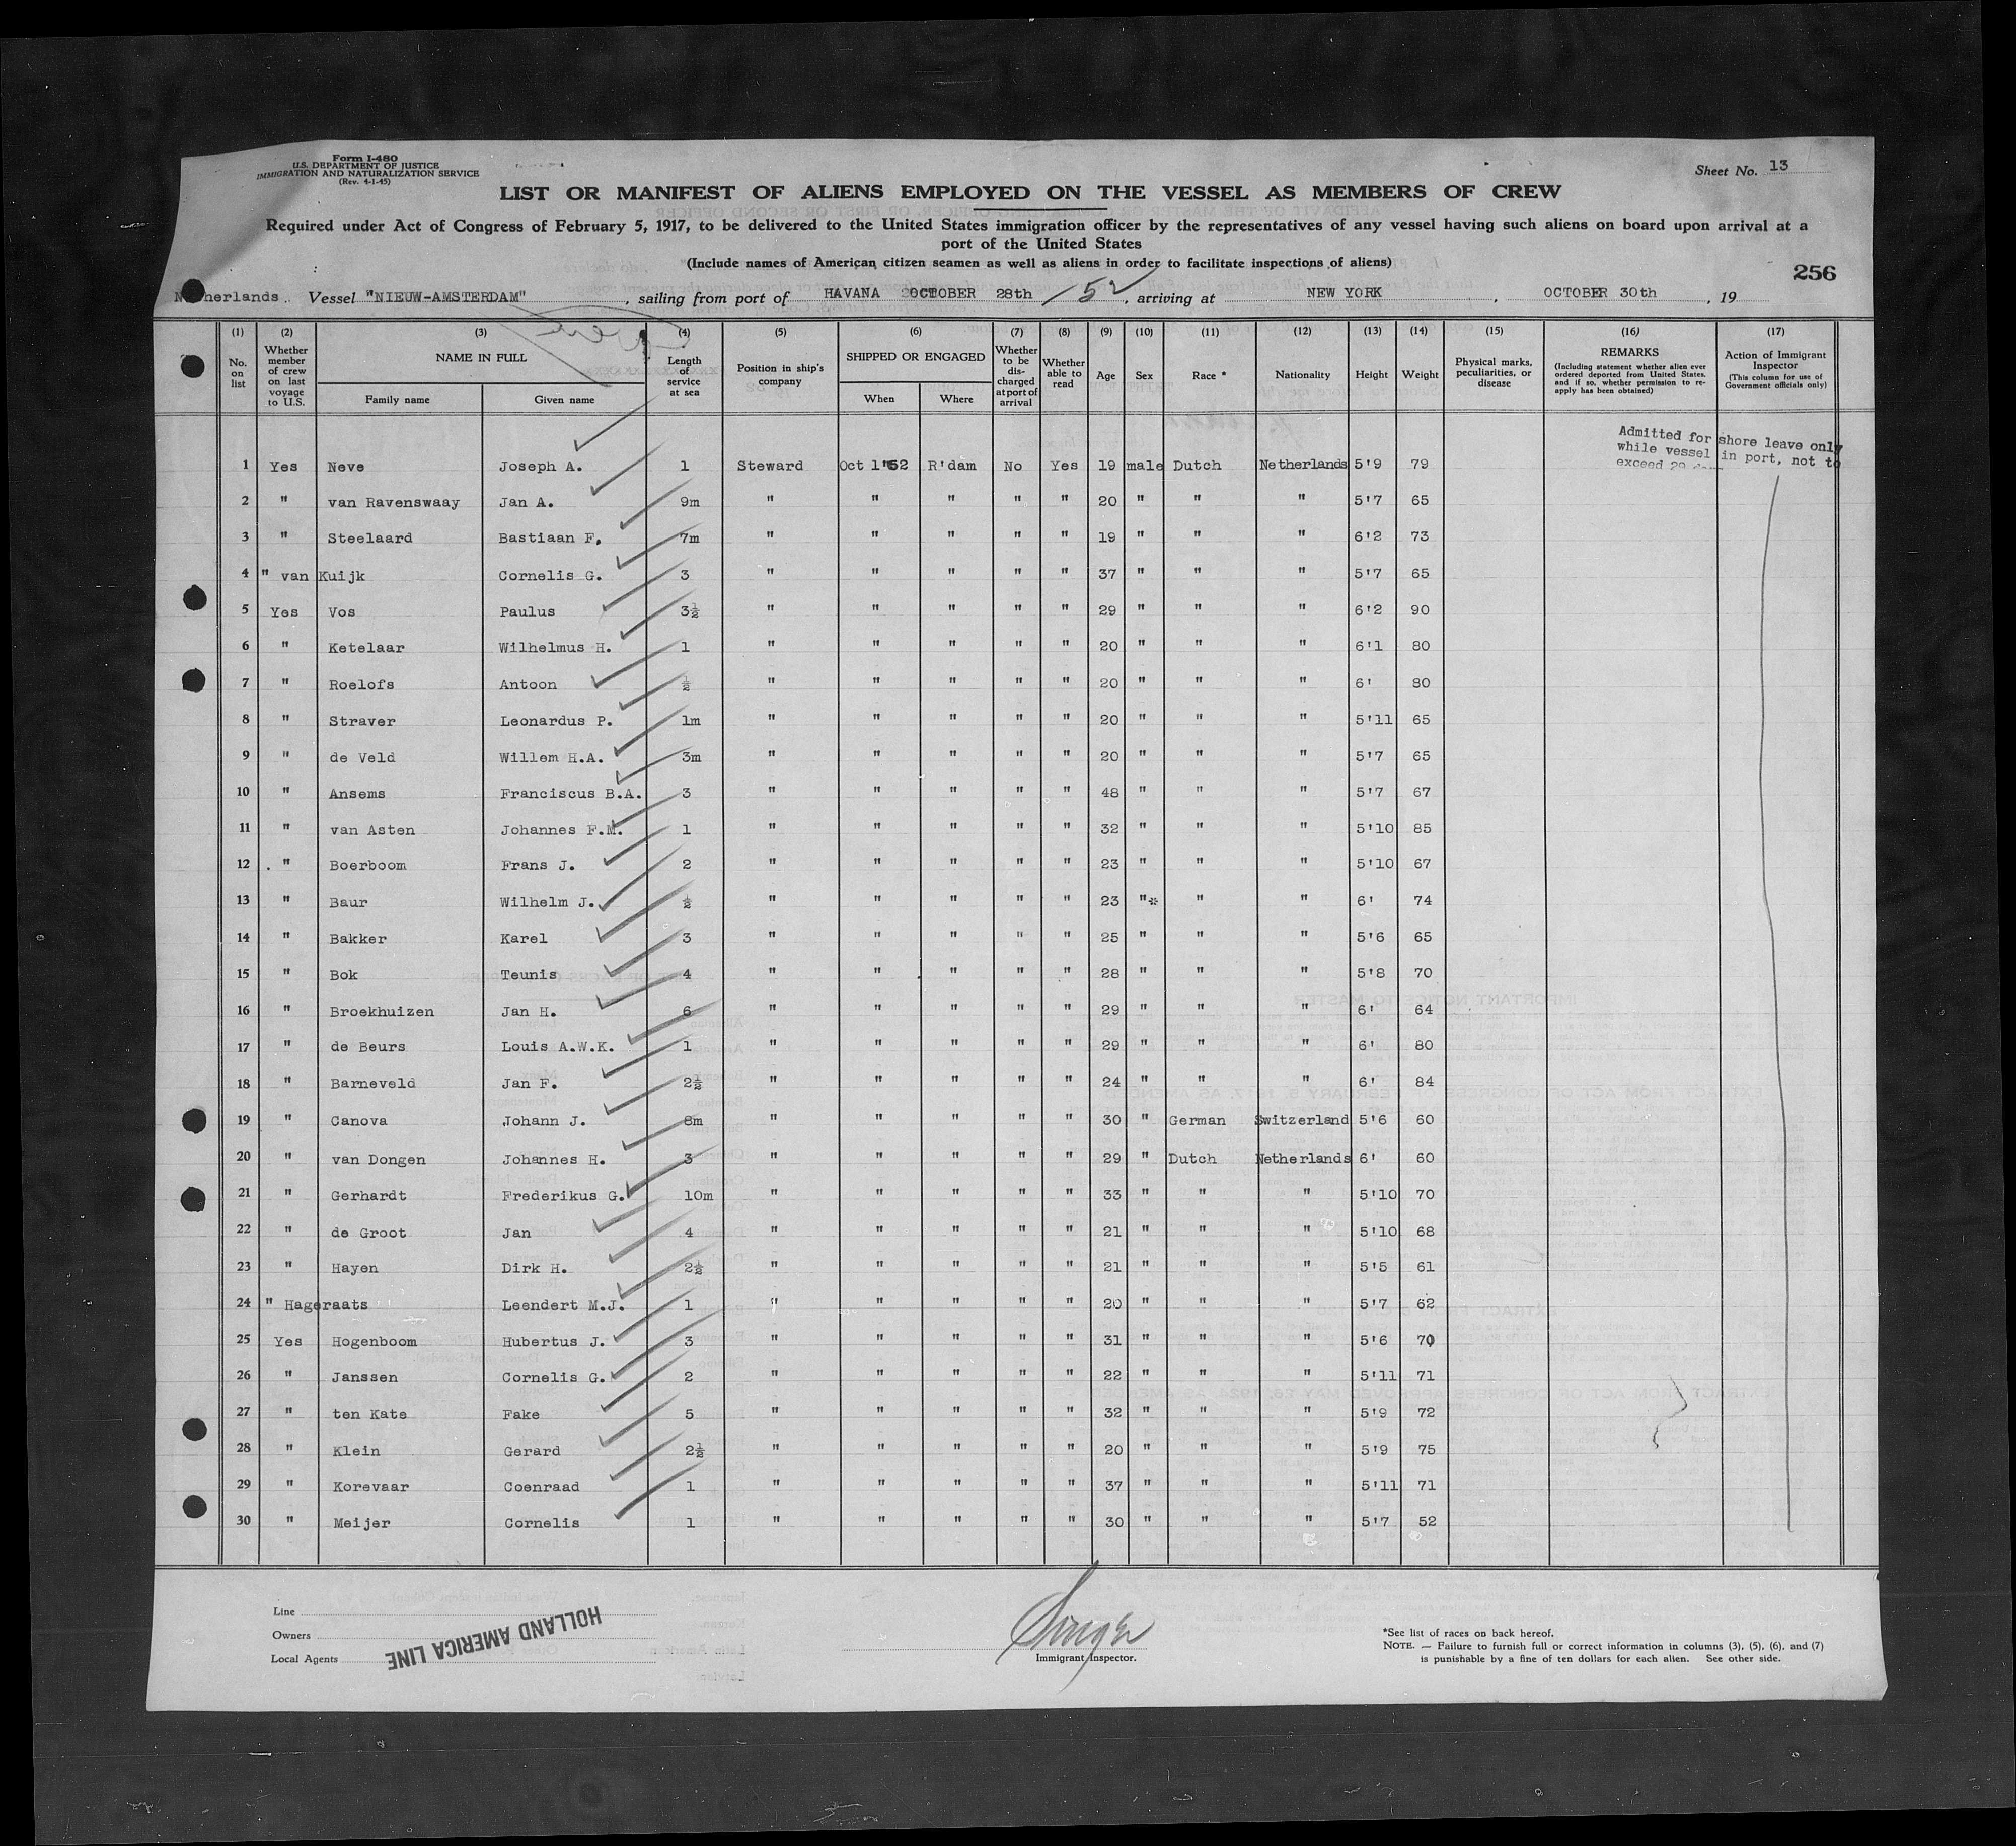 Form I-480
U.S. DEPARTMENT OF JUSTICE
IMMIGRATION AND NATURALIZATION SERVICE
(Rev. 4-1-45)
Sheet No. 13
LIST OR MANIFEST OF ALIENS EMPLOYED ON THE VESSEL AS MEMBERS OF CREW
Required under Act of Congress of February 5, 1917, to be delivered to the United States immigration officer by the representatives of any vessel having such aliens on board upon arrival at a
port of the United States
(Include names of American citizen seamen as well as aliens in order to facilitate inspections of aliens)
256
Netherlands. Vessel "NIEUW-AMSTERDAM", sailing from port of HAVANA OCTOBER 28th /52, arriving at NEW YORK, OCTOBER 30th, 19
(1) (2) (3) (4) (5) (6) (7) (8) (9) (10) (11) (12) (13) (14) (15) (16) (17)
No. on list
Whether member of crew on last voyage to U.S.
NAME IN FULL
Family name
Given name
Length of service at sea
Position in ship's company
SHIPPED OR ENGAGED
When
Where
Whether to be discharged at port of arrival
Whether able to read
Age
Sex
Race *
Nationality
Height
Weight
Physical marks, peculiarities, or disease
REMARKS
(Including statement whether alien ever ordered deported from United States, and if so, whether permission to re-apply has been obtained)
Action of Immigrant Inspector
(This column for use of Government officials only)
Admitted for shore leave only
while vessel in port, not to
exceed 29
1 Yes Neve Joseph A. 1 Steward Oct 1'52 R'dam No Yes 19 male Dutch Netherlands 5'9 79
2 " van Ravenswaay Jan A. 9m " " " " " 20 " " " 5'7 65
3 " Steelaard Bastiaan F, 7m " " " " " 19 " " " 6'2 73
4 " van Kuijk Cornelis G. 3 " " " " " 37 " " " 5'7 65
5 Yes Vos Paulus 3½ " " " " " 29 " " " 6'2 90
6 " Ketelaar Wilhelmus H. 1 " " " " " 20 " " " 6'1 80
7 " Roelofs Antoon ½ " " " " " 20 " " " 6' 80
8 " Straver Leonardus P. 1m " " " " " 20 " " " 5'11 65
9 " de Veld Willem H.A. 3m " " " " " 20 " " " 5'7 65
10 " Ansems Franciscus B.A. 3 " " " " " 48 " " " 5'7 67
11 " van Asten Johannes F.M. 1 " " " " " 32 " " " 5'10 85
12 " Boerboom Frans J. 2 " " " " " 23 " " " 5'10 67
13 " Baur Wilhelm J. ½ " " " " " 23 "* " " 6' 74
14 " Bakker Karel 3 " " " " " 25 " " " 5'6 65
15 " Bok Teunis 4 " " " " " 28 " " " 5'8 70
16 " Broekhuizen Jan H. 6 " " " " " 29 " " " 6' 64
17 " de Beurs Louis A.W.K. 1 " " " " " 29 " " " 6' 80
18 " Barneveld Jan F. 2½ " " " " " 24 " " " 6' 84
19 " Canova Johann J. 8m " " " " " 30 " German Switzerland 5'6 60
20 " van Dongen Johannes H. 3 " " " " " 29 " Dutch Netherlands 6' 60
21 " Gerhardt Frederikus G. 10m " " " " " 33 " " " 5'10 70
22 " de Groot Jan 4 " " " " " 21 " " " 5'10 68
23 " Hayen Dirk H. 2½ " " " " " 21 " " " 5'5 61
24 " Hageraats Leendert M.J. 1 " " " " " 20 " " " 5'7 62
25 Yes Hogenboom Hubertus J. 3 " " " " " 31 " " " 5'6 70
26 " Janssen Cornelis G. 2 " " " " " 22 " " " 5'11 71
27 " ten Kate Fake 5 " " " " " 32 " " " 5'9 72
28 " Klein Gerard 2½ " " " " " 20 " " " 5'9 75
29 " Korevaar Coenraad 1 " " " " " 37 " " " 5'11 71
30 " Meijer Cornelis 1 " " " " " 30 " " " 5'7 52
Line
Owners
Local Agents
HOLLAND AMERICA LINE
Immigrant Inspector.
*See list of races on back hereof.
NOTE. — Failure to furnish full or correct information in columns (3), (5), (6), and (7)
is punishable by a fine of ten dollars for each alien. See other side.